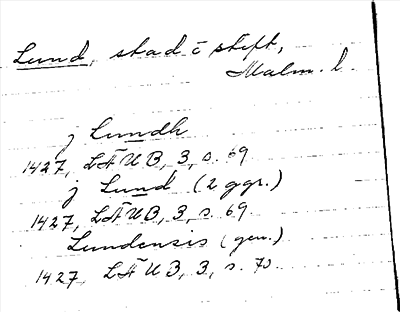 Lund, stad o stift,
Malm. l.
j Lundh
1427, LÄUB, 3, s. 69
j Lund (2 ggr.)
1427, LÄUB, 3, s. 69
Lundensis (gen.)
1427, LÄUB, 3, s. 70